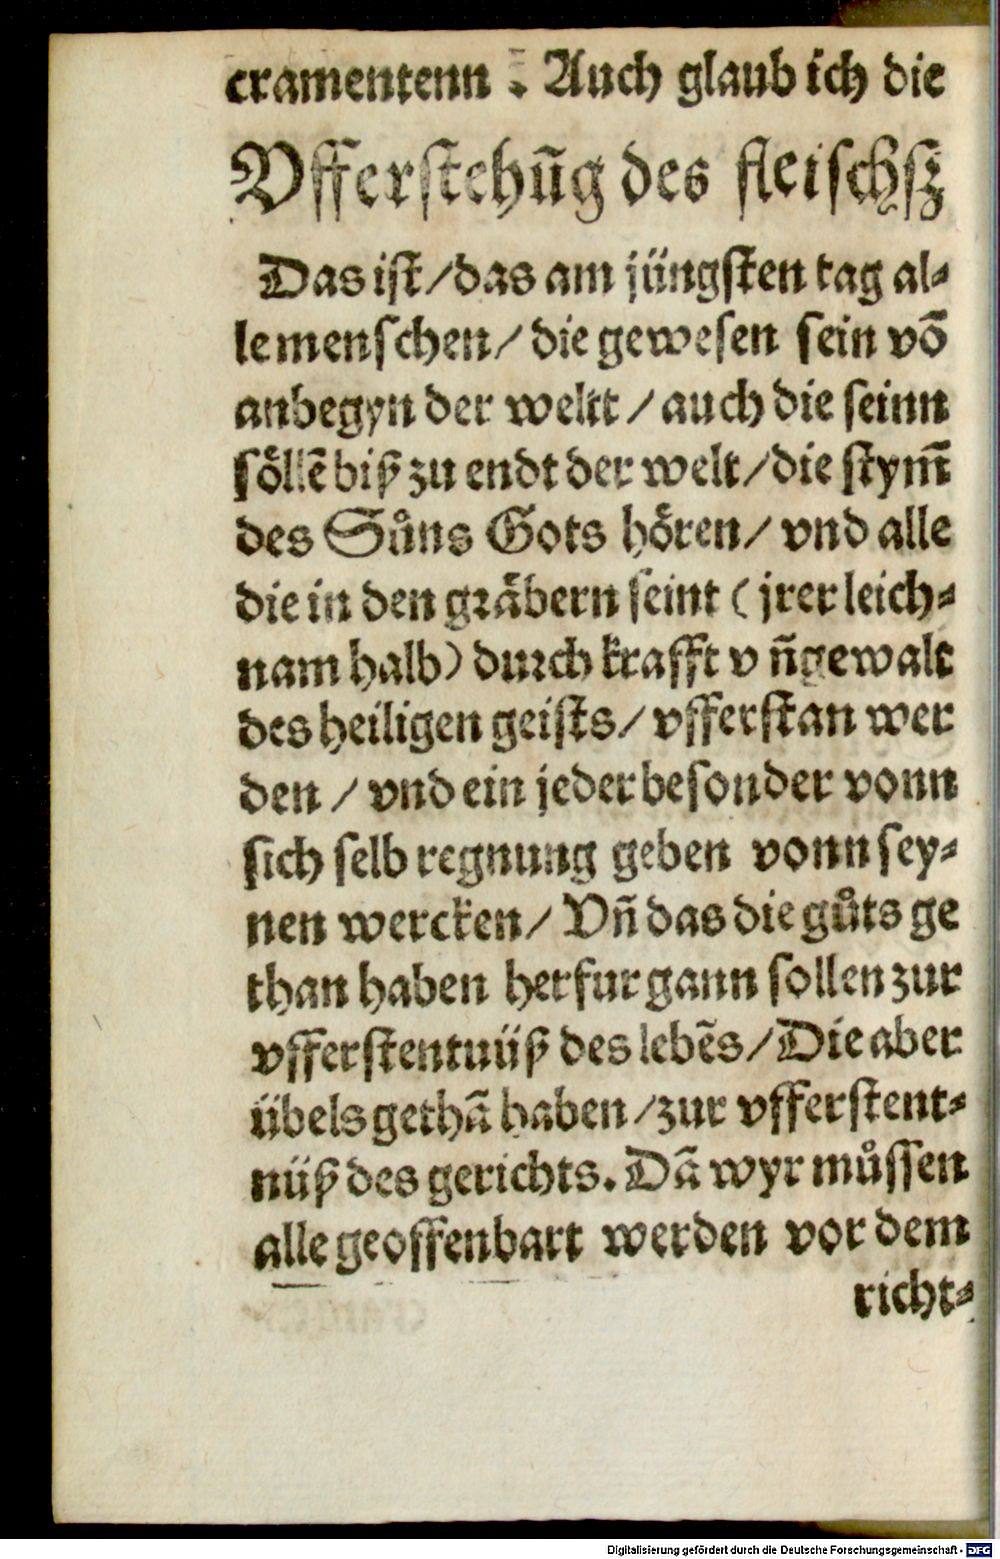 cramentenn : Auch glaub ich die
Vfferstehūg des fleischsz
Das ist/das am jüngsten tag al⸗
le menschen/ die gewesen sein vō
anbegyn der weltt / auch die seinn
söllē biß zu endt der welt/die stym̄
des Sůns Gots hören/ vnd alle
die in den gräbern seint ( jrer leich⸗
nam halb) durch krafft v n̄gewalt
des heiligen geists/ vfferstan wer
den / vnd ein jeder besonder vonn
sich selb regnung geben vonn sey⸗
nen wercken/ Vn̄ das die gůts ge
than haben herfur gann sollen zur
vfferstentnüß des lebēs/Die aber
übels gethā haben /zur vfferstent⸗
nüß des gerichts. Dā wyr můssen
alle geoffenbart werden vor dem
richt⸗
Digitalisierung gefördert durch die Deutsche Forschungsgemeinschaft - DFG